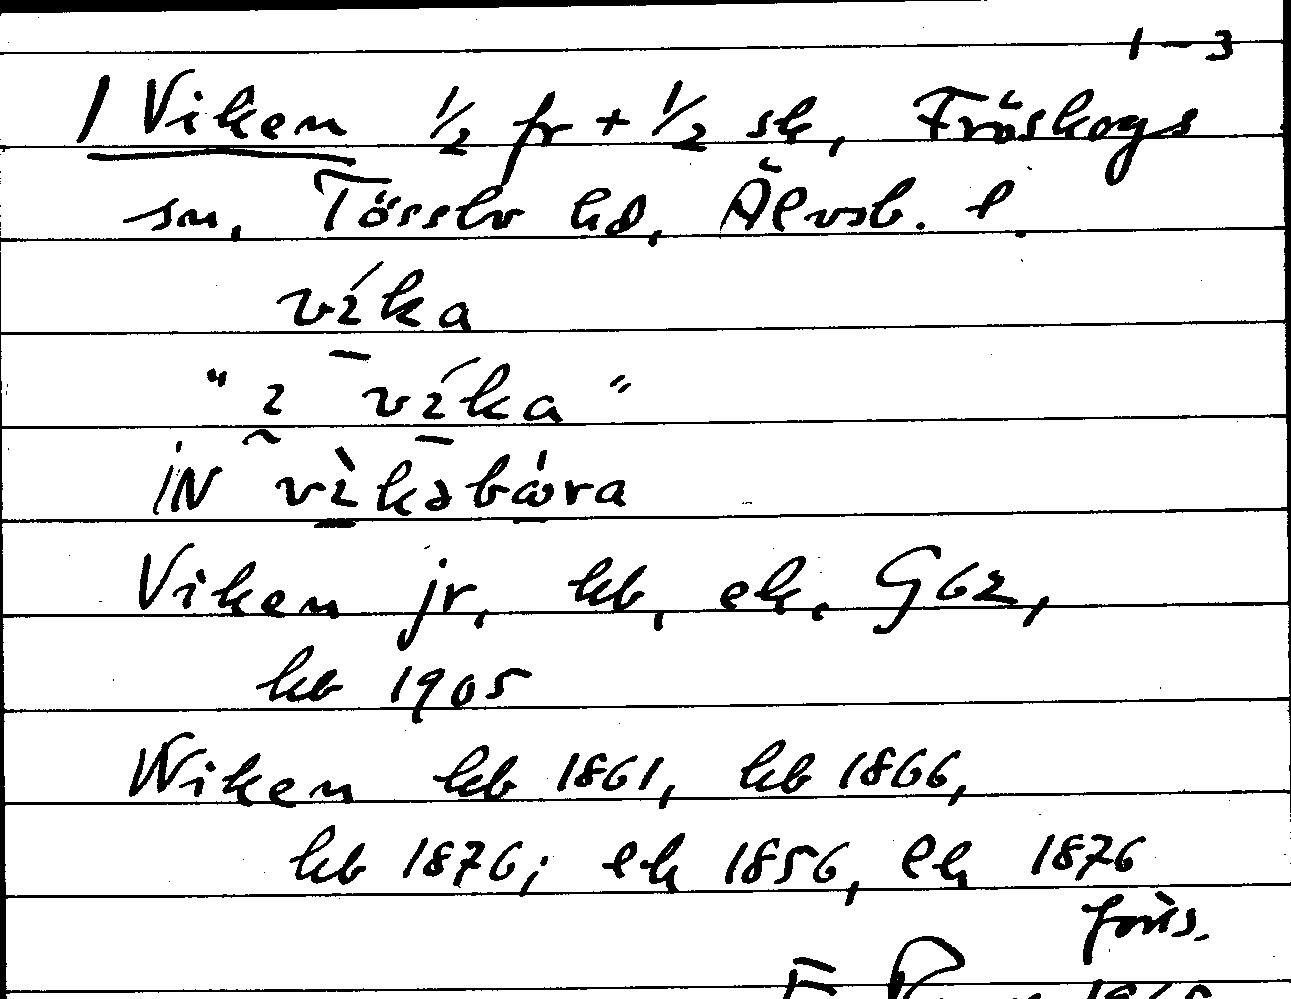 1-3
1 Viken 1/2 fr + 1/2 sk, Fröskogs
sn, Tössbo hd, Älvsb. l.
víka
"i víka"
IN vìkəbóra
Viken jr, kb, ek. G62,
kb 1905
Wiken kb 1861, kb 1866,
kb 1876; ek 1856, ek 1876
forts.